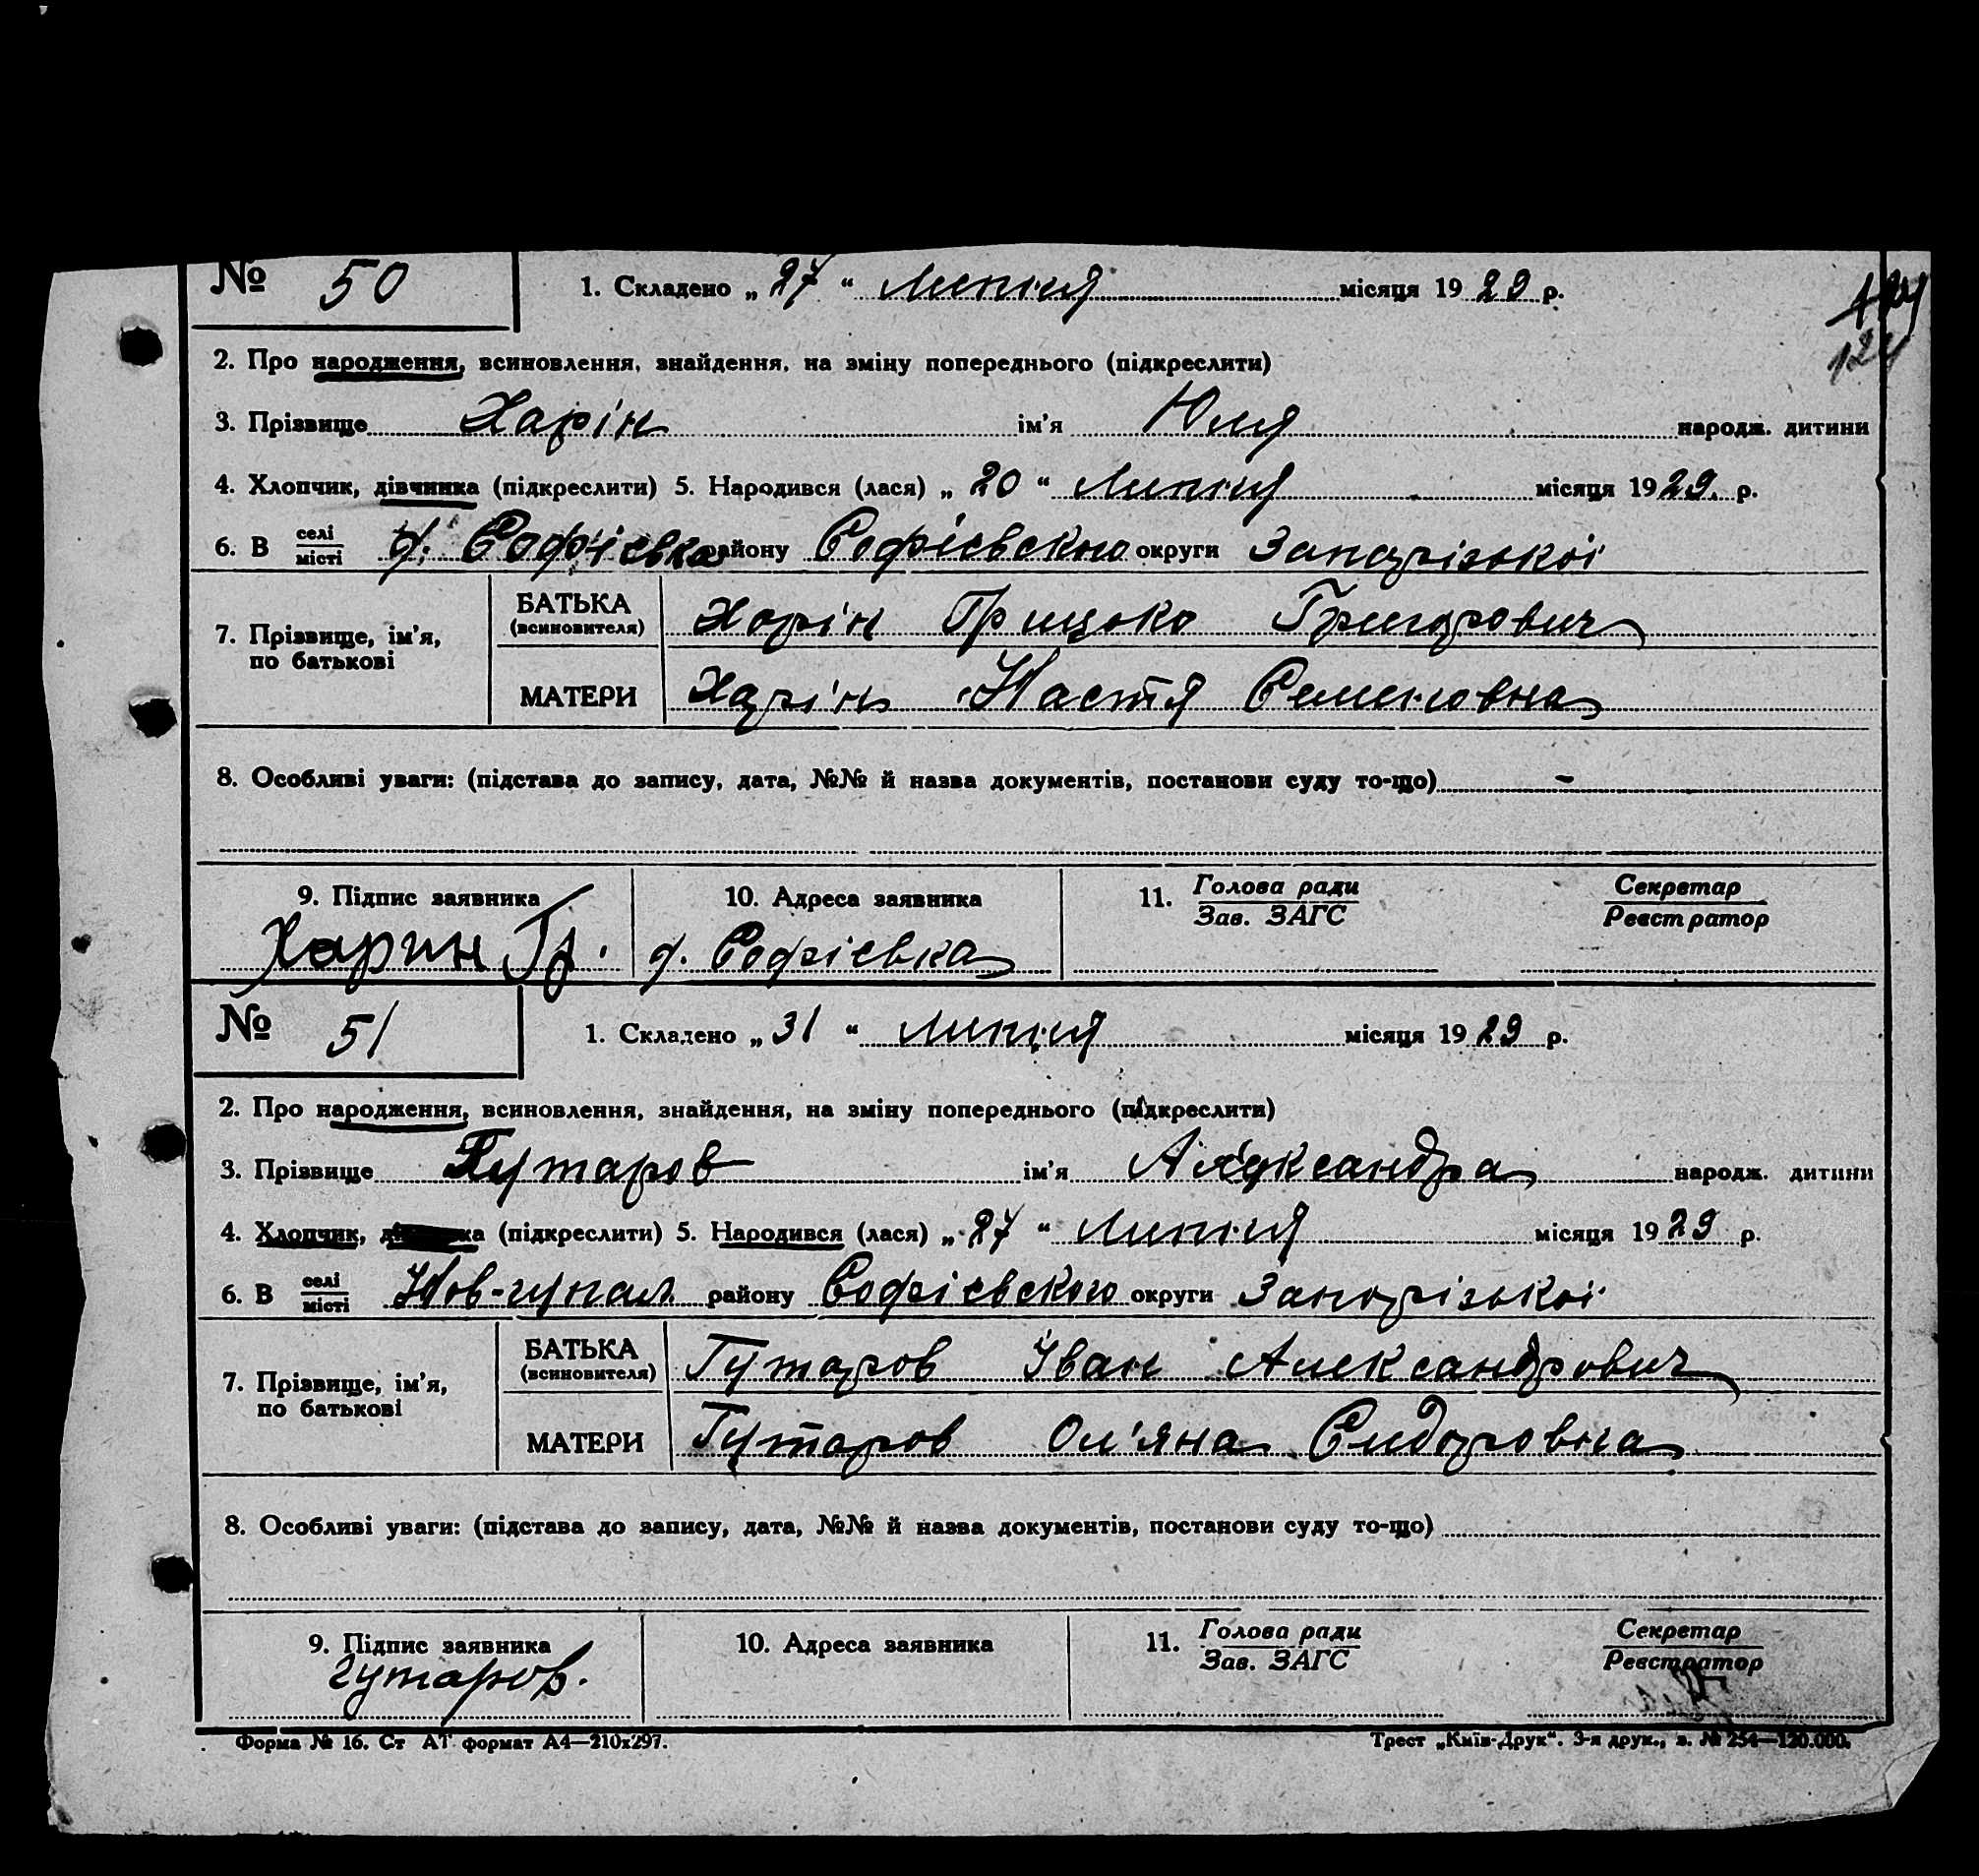 № 50 1. Складено „ 27 “ Липня місяця 19 29 р.
124
2. Про народження, всиновлення, знайдення, на зміну попереднього (підкреслити)
3. Прізвище Харін ім'я Юля народж. дитини
4. Хлопчик, дівчинка (підкреслити) 5. Народився (лася) „ 20 “ Липня місяця 19 29. р.
6. В селі/місті ф. Софіевка району Софіевского округи Запорізькоі
7. Прізвище, ім'я, по батькові БАТЬКА (всиновителя) Харін Грицько Григорович
МАТЕРИ Харін Настя Семеновна
8. Особливі уваги: (підстава до запису, дата, №№ й назва документів, постанови суду то-що) -
9. Підпис заявника 10. Адреса заявника 11. Голова ради/Зав. ЗАГС Секретар/Реєстратор
Харин Гр. ф. Софіевка
№ 51 1. Складено „ 31 “ Липня місяця 19 29 р.
2. Про народження, всиновлення, знайдення, на зміну попереднього (підкреслити)
3. Прізвище Гутаров ім'я Александра народж. дитини
4. Хлопчик, (підкреслити) 5. Народився (лася) „ 27 “ Липня місяця 19 29 р.
6. В селі/місті району Софіевского округи Запорізькоі
7. Прізвище, ім'я, по батькові БАТЬКА (всиновителя) Гутаров Іван Александрович
МАТЕРИ Гутаров Ол'яна Сидоровна
8. Особливі уваги: (підстава до запису, дата, №№ й назва документів, постанови суду то-що)
9. Підпис заявника 10. Адреса заявника 11. Голова ради/Зав. ЗАГС Секретар/Реєстратор
Гутаров.
Форма № 16. Ст А1 формат А4—210х297. Трест „Київ-Друк“. 3-я друк., з. № 254—120.000.